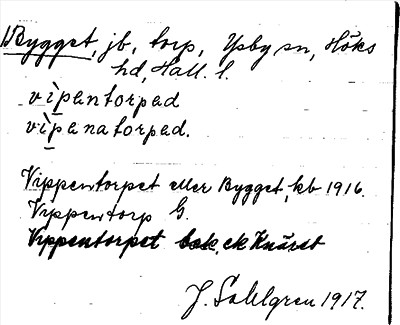 Bygget, jb, torp, Ysby sn, Höks
hd, Hall. l.
vìpentorped
vìpenatorped.
Vippentorpet eller Bygget, kb 1916.
Vippentorp G.
Vippentorpet ek Knäret
J. Sahlgren 1917.